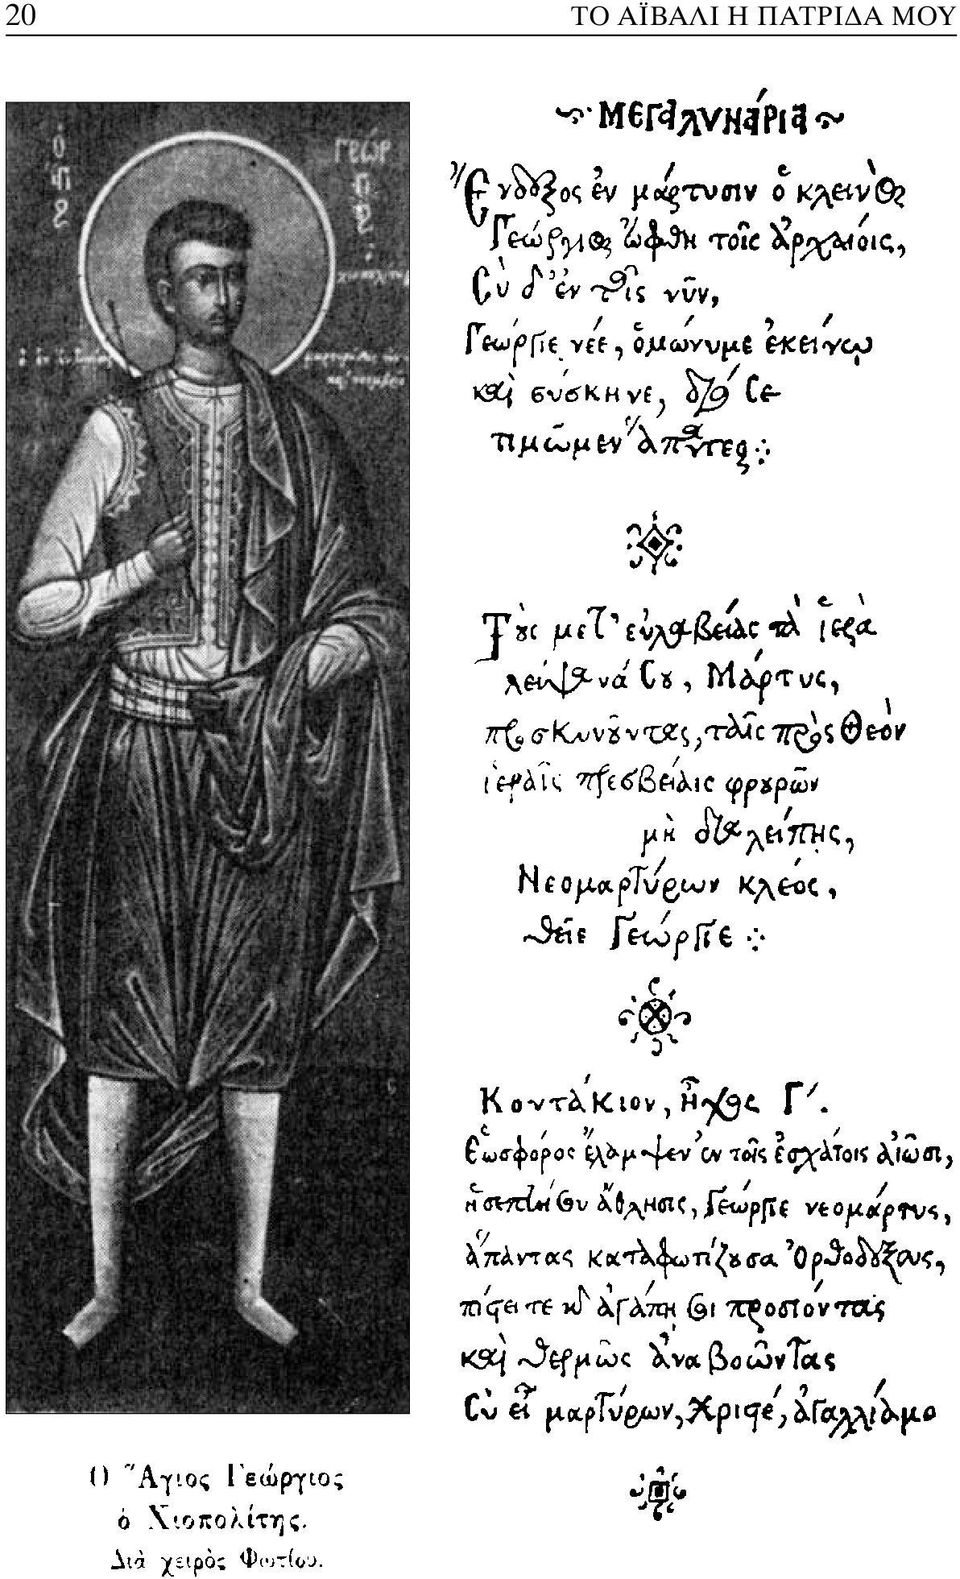 20
ΤΟ ΑΪΒΑΛΙ Η ΠΑΤΡΙΔΑ ΜΟΥ
ΓΕΩΡ
ΜΕΓΑΛΥΝΑΡΙΑ
Ἔνδοξος ἐν μάρτυσιν ὁ κλεινὸς
Γεώργιος ὤφθη τοῖς ἀρχαίοις,
Σὺ δ' ἐν τοῖς νῦν,
Γεώργιε νέε, ὁμώνυμε ἐκείνῳ
καὶ σύσκηνε, διό Σε
τιμῶμεν ἅπαντες
Τοὺς μετ' εὐλαβείας τὰ ἱερὰ
λείψανά Σου, Μάρτυς,
προσκυνοῦντας, ταῖς πρὸς Θεὸν
ἱεραῖς πρεσβείαις φρουρῶν
μὴ διαλείπης,
Νεομαρτύρων κλέος,
θεῖε Γεώργιε
Κοντάκιον, Ἦχος Γ΄.
Ἑωσφόρος ἔλαμψεν ἐν τοῖς ἐσχάτοις αἰῶσι,
ἡ σεπτή Σου ἄθλησις, Γεώργιε νεομάρτυς,
ἅπαντας καταφωτίζουσα Ὀρθοδόξους,
πίστει τε καὶ ἀγάπη Σοι προσιόντας
καὶ θερμῶς ἀναβοῶντας
Σὺ εἶ μαρτύρων, Χριστέ, ἀγαλλίαμα
Ο Ἅγιος Γεώργιος
ὁ Χιοπολίτης.
Διὰ χειρὸς Φωτίου.